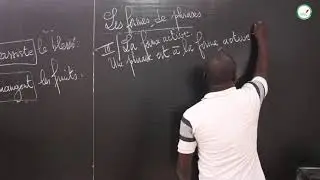 Les formes de phrases
III La forme active
Une phrase est à la forme active
assiste le blessé.
mangent les fruits.